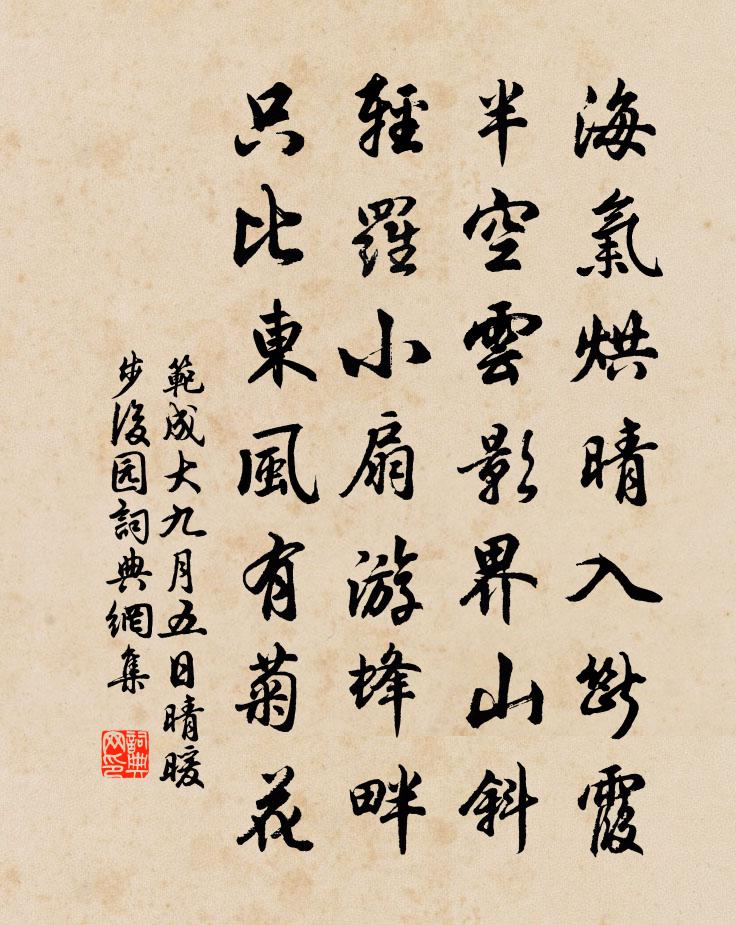 海氣烘晴入斷霞
半空雲影界山斜
輕羅小扇游蜂畔
只比東風有菊花
範成大九月五日晴暖
步後园詞典網集
詞典
网印